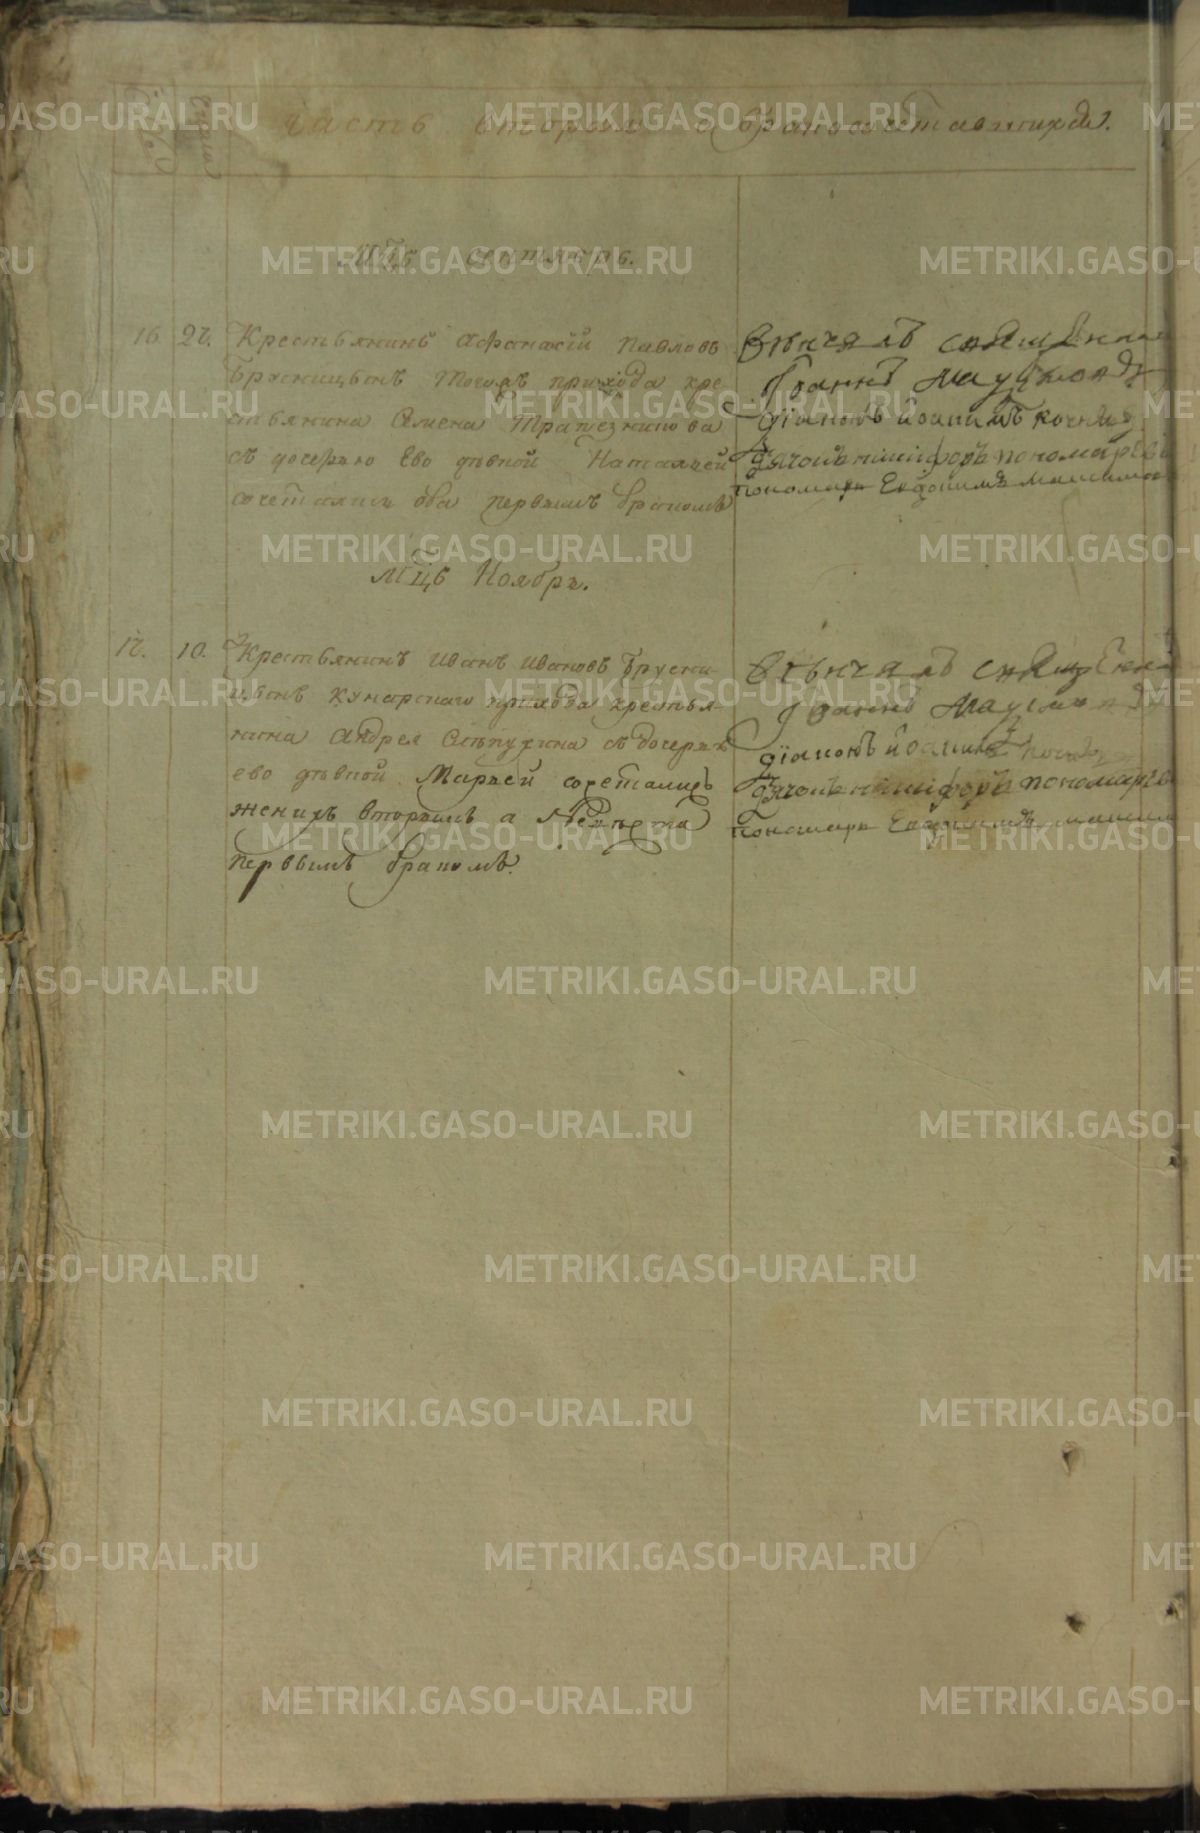 Часть вторая о бракосочетавшихся.
Число
Мцъ сентябрь.
16 27. Крестьянинъ Афанасiй Павловъ
Брусницынъ тогожъ прихода кре
стьянина Семена Трапезникова
съ дочерью Ево дѣвкой Натальей
сочетались оба первымъ бракомъ
Вѣнчалъ священникъ
Iоаннъ
дiаконъ Иоакимъ
дьячокъ никифоръ пономаревъ
пономарь Евдокимъ
Мцъ Ноябрь.
17. 10. Крестьянинъ Иванъ Ивановъ Брусни
цынъ кунарскаго прихода крестья
нина Андрея Слепухина съ дочерью
ево дѣвкой Марьей сочетались
женихъ вторымъ а невѣста
первымъ бракомъ.
Вѣнчалъ священникъ
Iоаннъ
дiаконъ Иоакимъ
дьячокъ никифоръ пономаревъ
пономарь Евдокимъ
METRIKI.GASO-URAL.RU